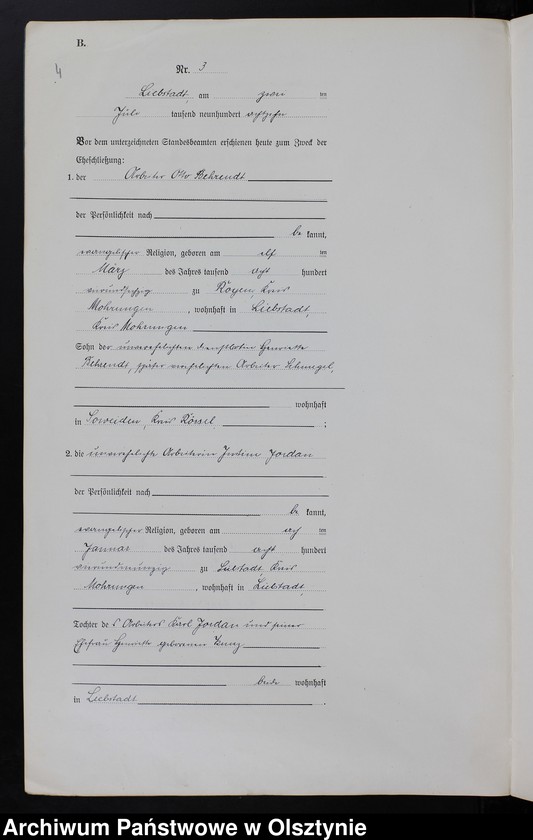 B.
4
Nr. 3
Liebstadt, am zwei ten
Juli tausend neunhundert achtzehn
Vor dem unterzeichneten Standesbeamten erschienen heute zum Zweck der
Eheschließung:
1. der Arbeiter Otto Behrendt
der Persönlichkeit nach
be kannt,
evangelischer Religion, geboren am elf ten
März des Jahres tausend acht hundert
zu Royen, Kreis
Mohrungen, wohnhaft in Liebstadt,
Kreis Mohrungen
Sohn der unverehelichten Dienstbotin Henriette
Behrendt, später verehelichten Arbeiter
wohnhaft
in Soweiden, Kreis Rössel ;
2. die unverehelichte Arbeiterin Jordan
der Persönlichkeit nach
be kannt,
evangelischer Religion, geboren am ten
Januar des Jahres tausend acht hundert
vierundneunzig zu Liebstadt, Kreis
Mohrungen, wohnhaft in Liebstadt,
Tochter des Arbeiters Karl Jordan und seiner
Ehefrau Henriette geborenen
beide wohnhaft
in Liebstadt .
Archiwum Państwowe w Olsztynie